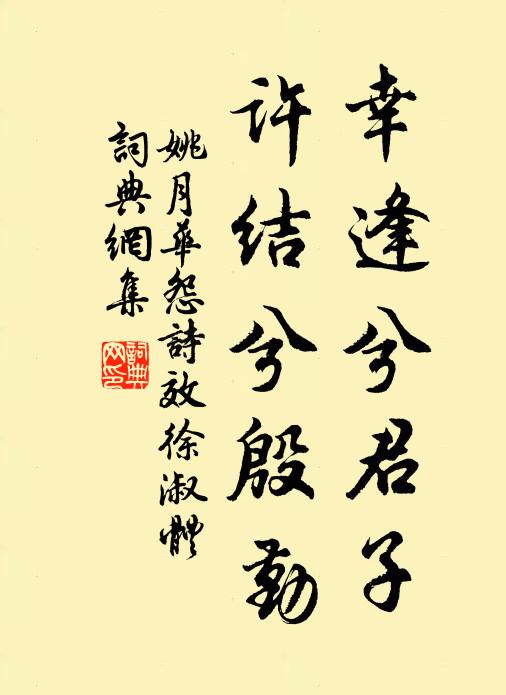 幸逢兮君子
許结兮殷勤
姚月華怨詩效徐淑體
詞典網集
詞典網印